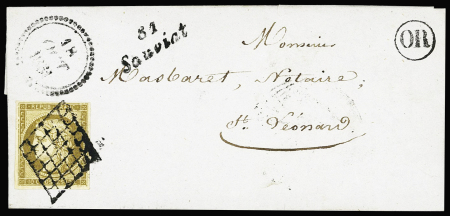 18
81
Sauviat
OR
Monsieur
Masbaret, Notaire
St. Léonard